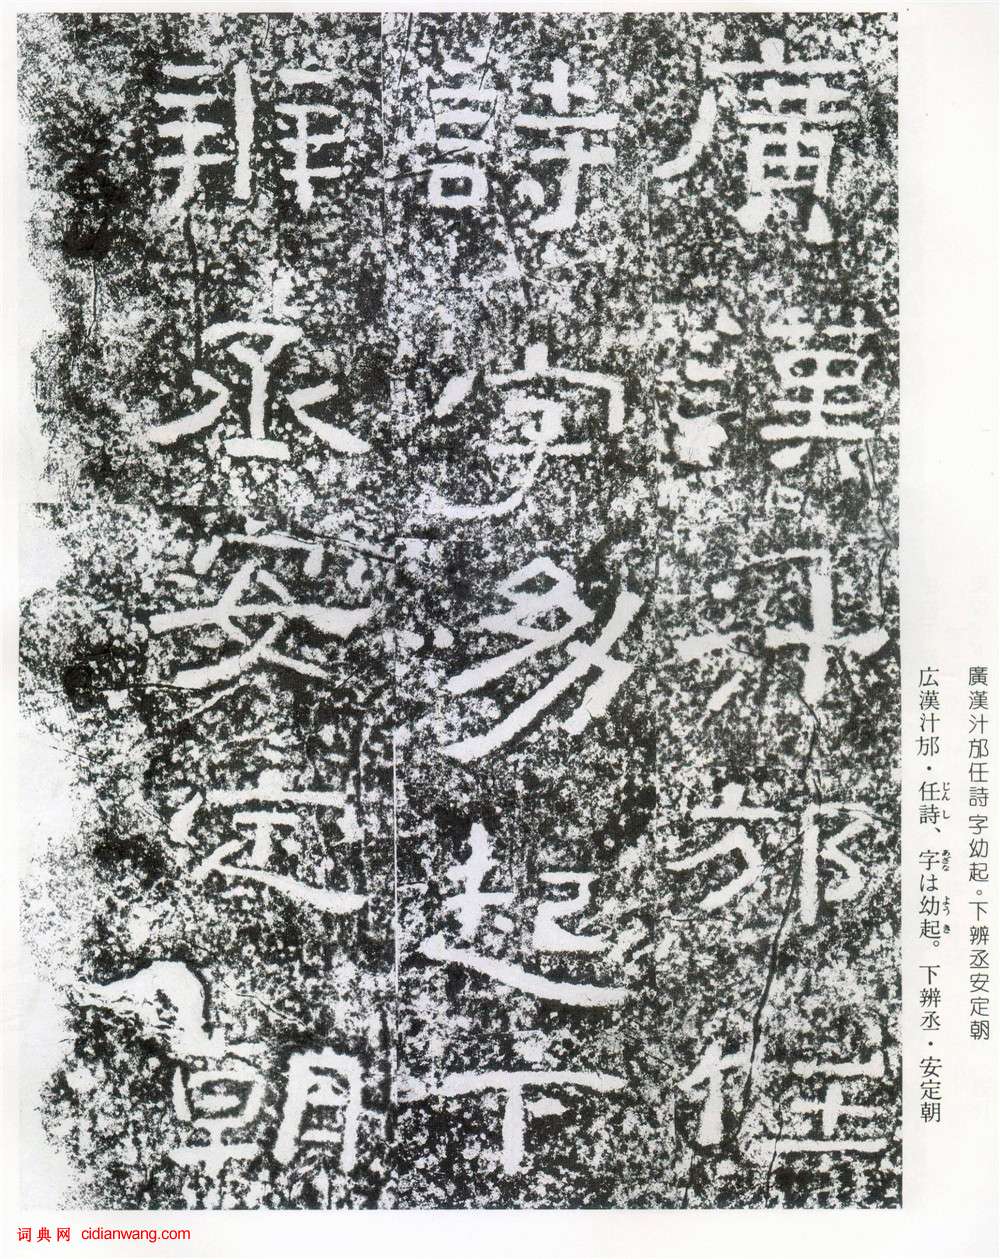 廣漢汁邡任
詩字幼起下
辨丞安定朝
廣漢汁邡任詩字幼起。下辨丞安定朝
広漢汁邡・任詩、字は幼起。下辨丞・安定朝
じんし
あざな
ようき
词典网 cidianwang.com